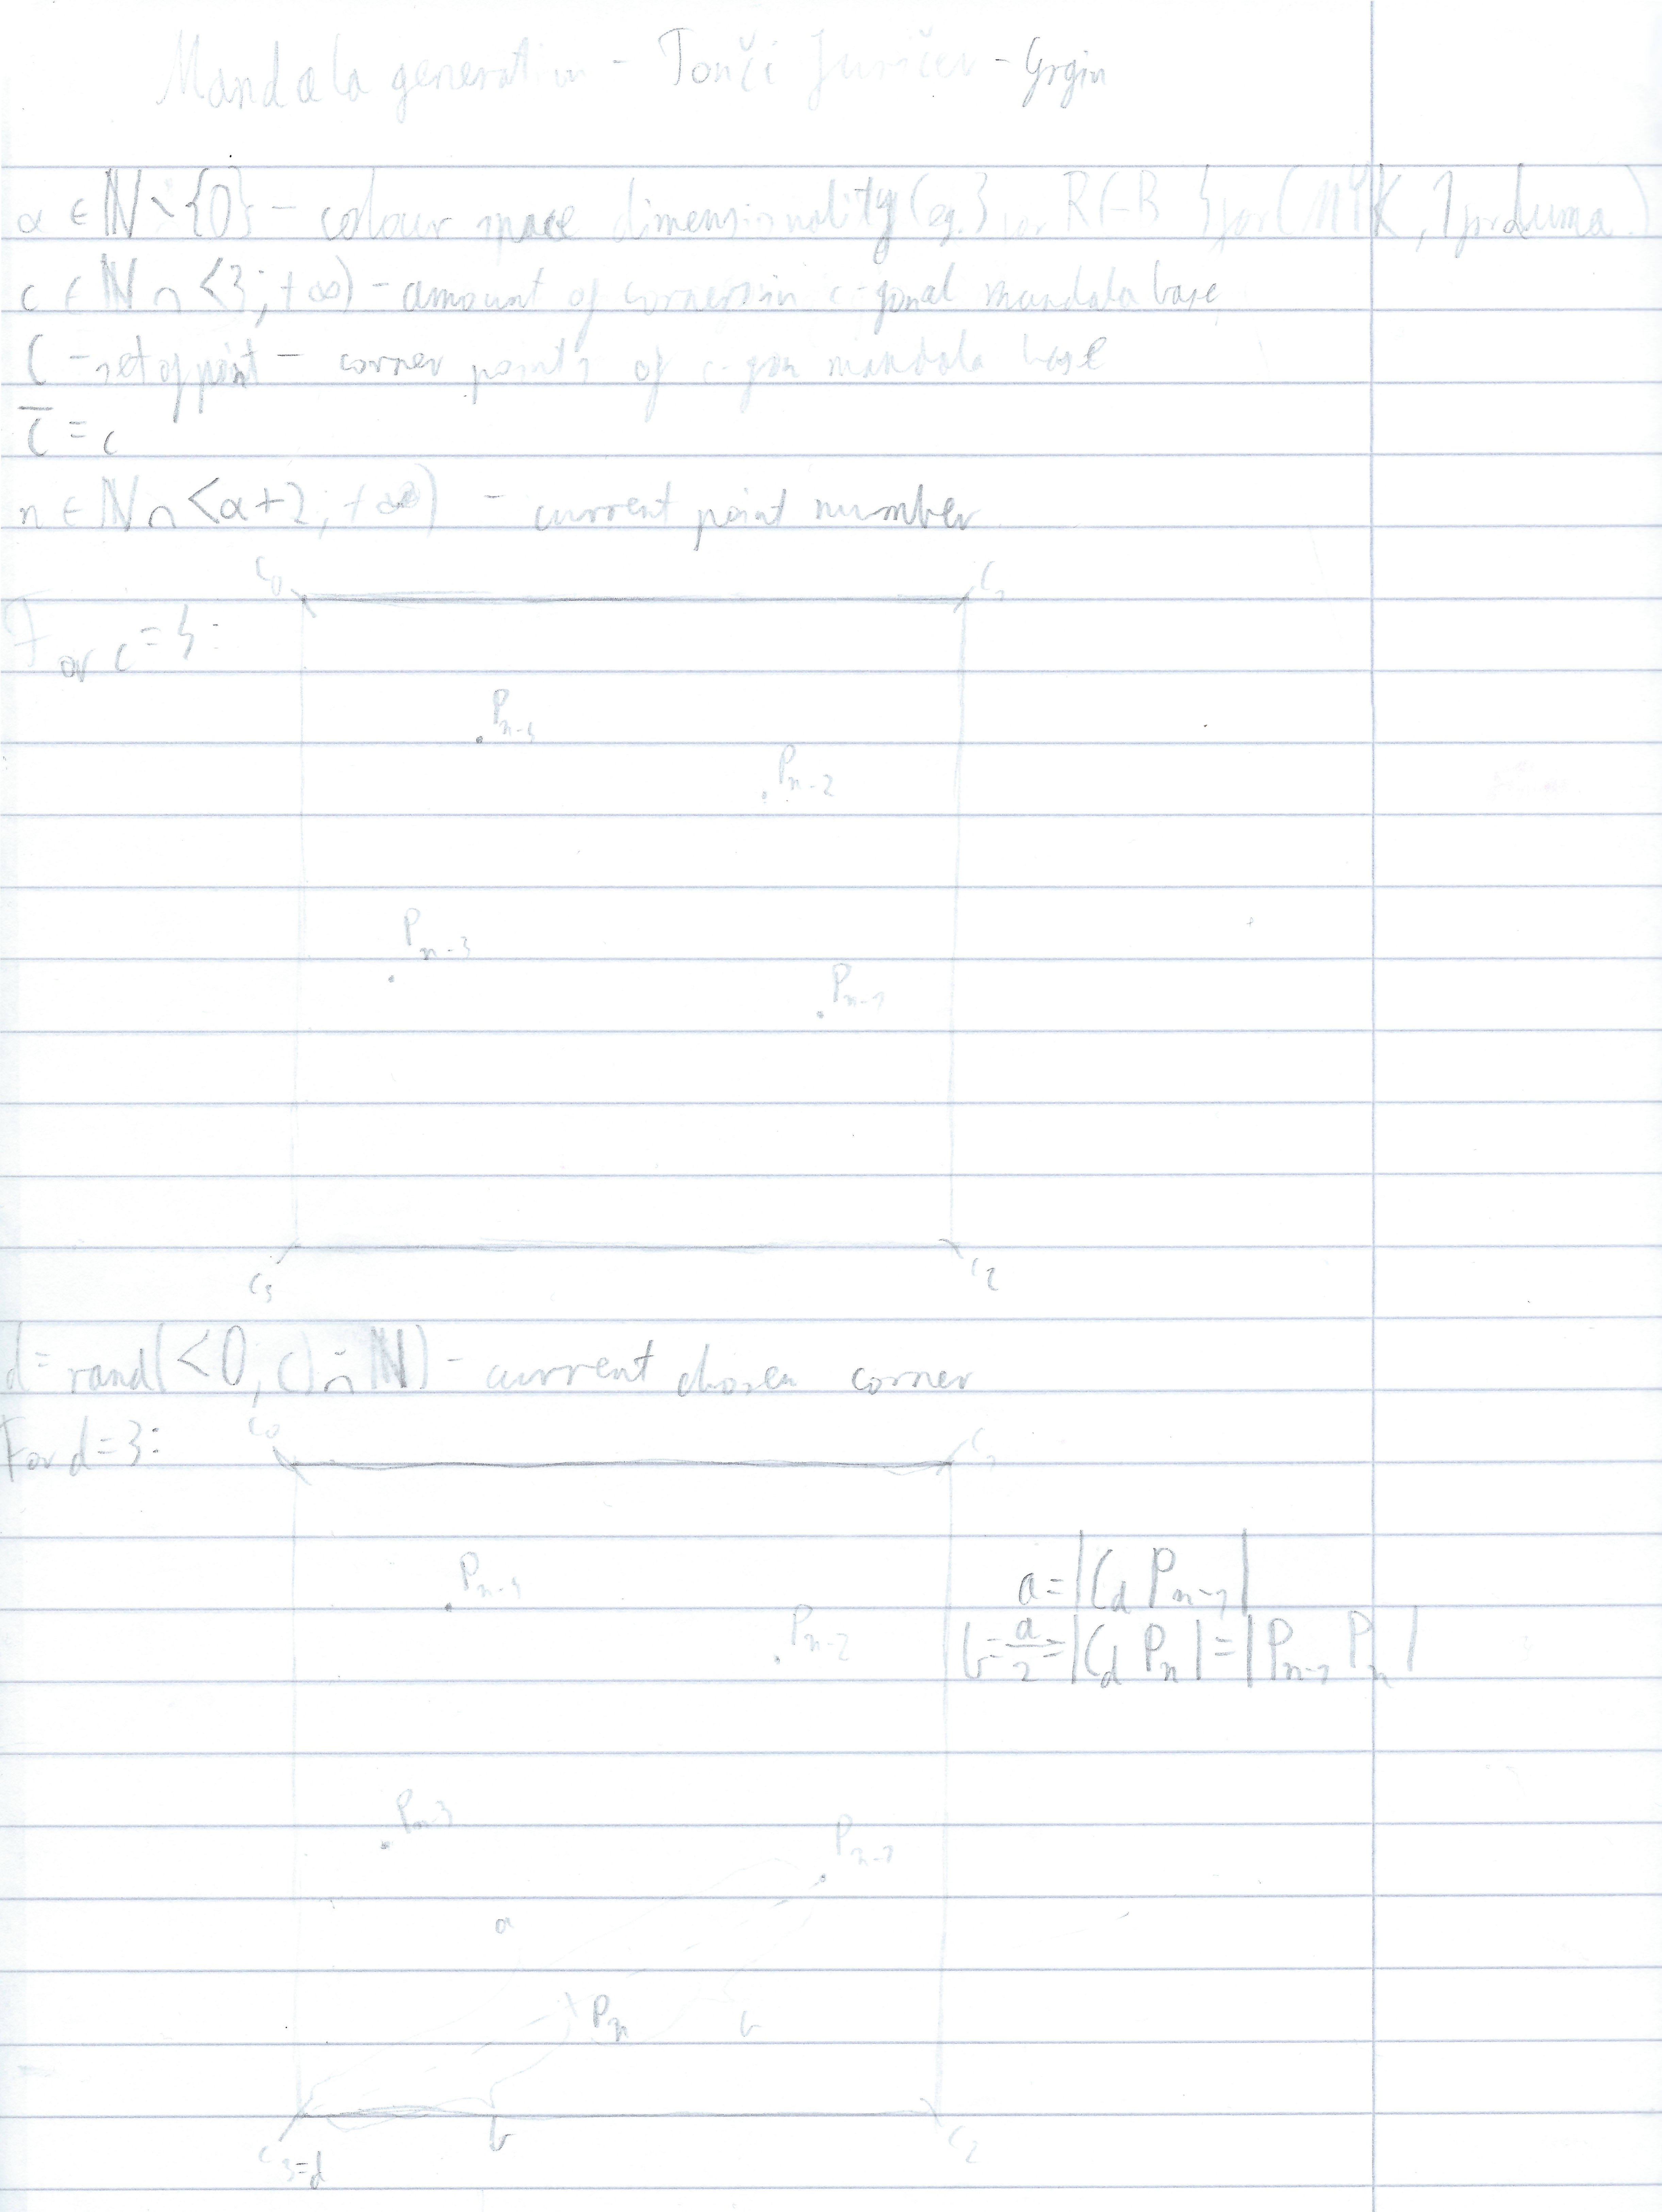 Mandala generation - Tonči Juričev - Grgin
α ∈ ℕ \ {0} - colour space dimensionality (eg. 3 for RGB, 4 for CMYK, 1 for Luma.)
c ∈ ℕ ∩ <3; +∞) - amount of corners in c-gonal mandala base
C - set of point - corner points of c-gon mandala base
C̅ = c
n ∈ ℕ ∩ <α+2; +∞) - current point number
C₀ C₁
For c = 4:
Pₙ₋₄
Pₙ₋₂
Pₙ₋₃
Pₙ₋₁
C₃ C₂
d = rand(<0; c) ∩ ℕ) - current chosen corner
For d = 3: C₀ C₁
Pₙ₋₄ a = |C_d Pₙ₋₁|
Pₙ₋₂ b = a/2 = |C_d Pₙ| = |Pₙ₋₁ Pₙ|
Pₙ₋₃
Pₙ₋₁
a
Pₙ b
b
C₃=d C₂